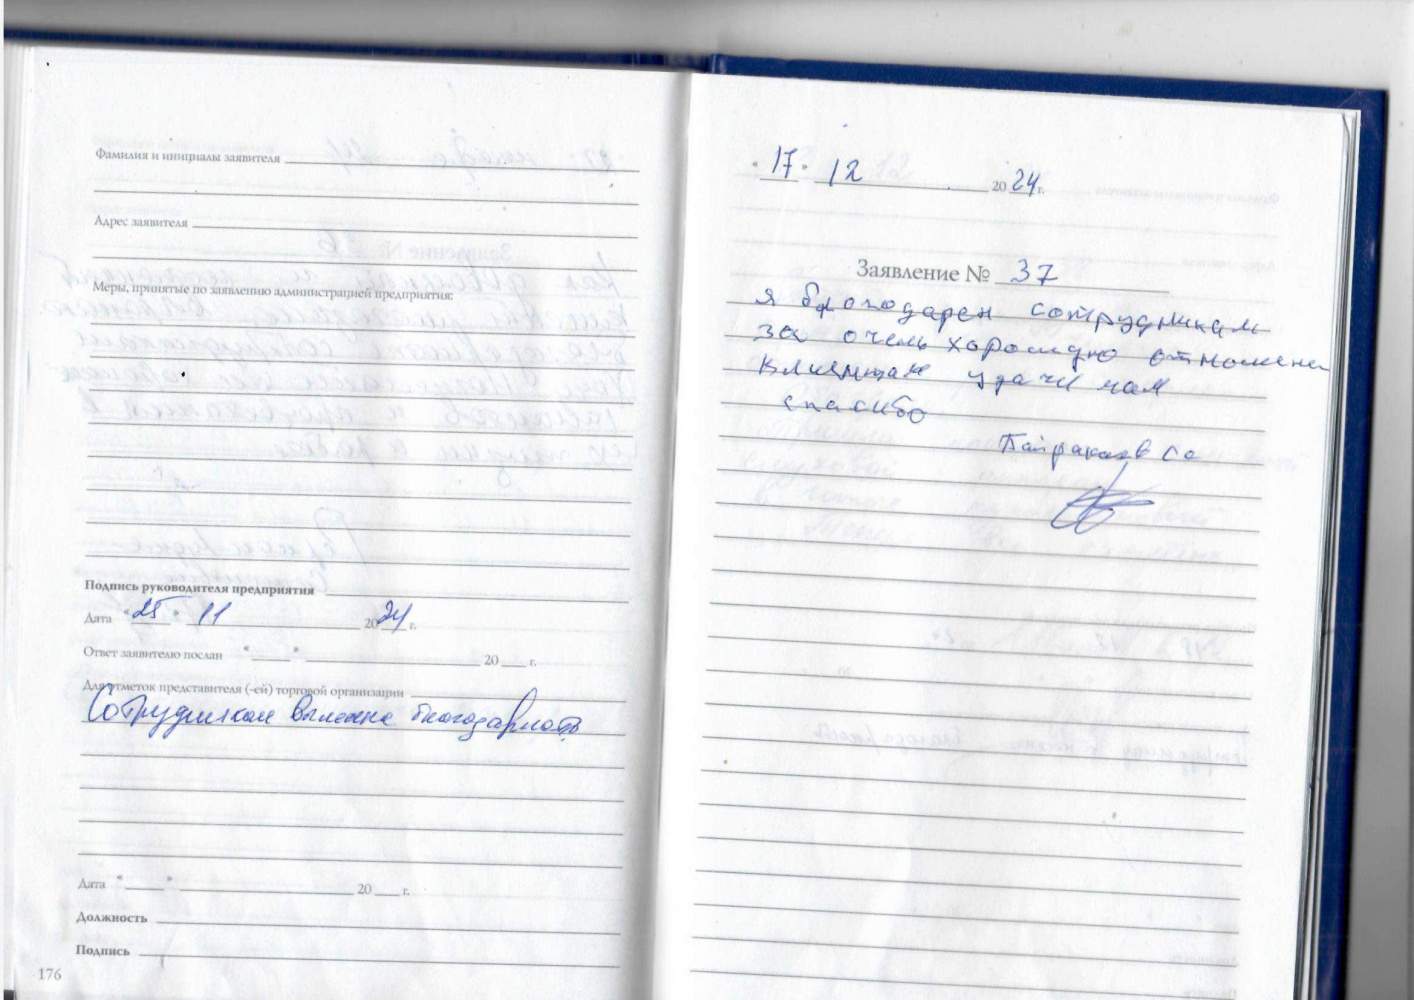 Фамилия и инициалы заявителя
Адрес заявителя
Меры, принятые по заявлению администрацией предприятия:
Подпись руководителя предприятия
Дата "25" 11 2024 г.
Ответ заявителю послан " " 20 г.
Для отметок представителя (-ей) торговой организации
Сотрудникам вынесена благодарность
Дата " " 20 г.
Должность
Подпись
176
"17" 12 2024 г.
Заявление № 37
я благодарен сотрудникам
за очень хорошую отношения
удачи
спасибо